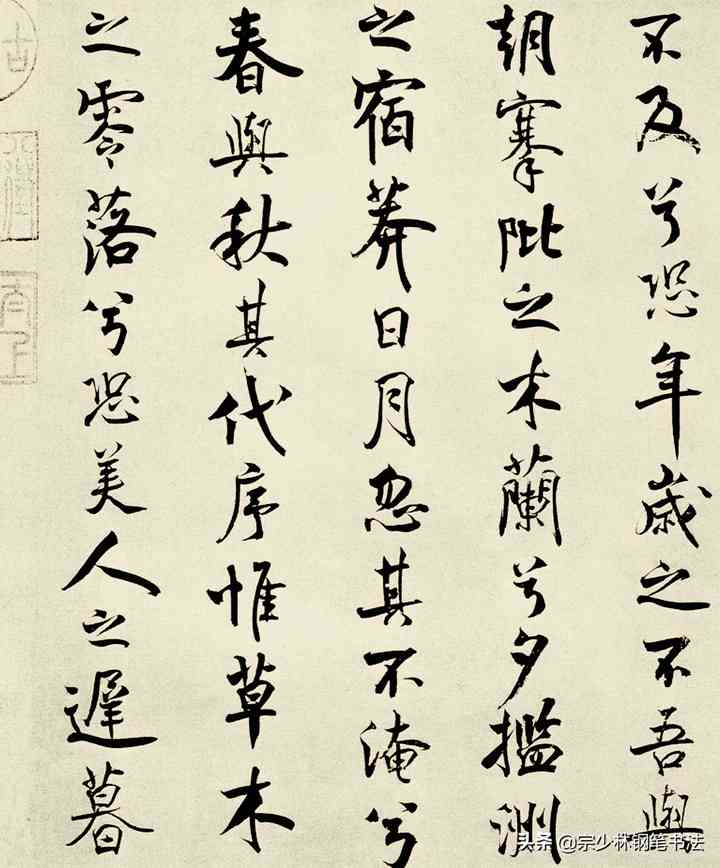 不及兮恐年歲之不吾與
朝搴阰之木蘭兮夕㩜洲
之宿莽日月忽其不淹兮
春與秋其代序惟草木
之零落兮恐美人之遲暮
头条 @宗少林钢笔书法